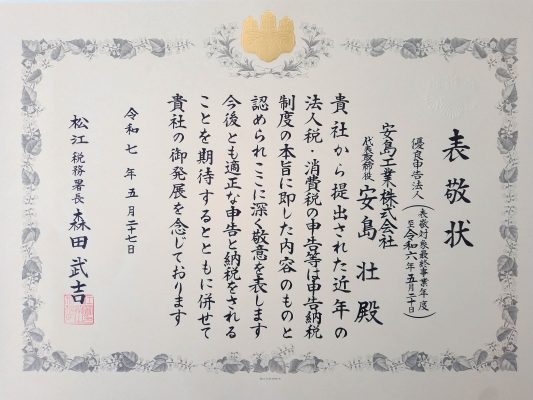 表敬状
優良申告法人(表敬対象最終事業年度 至令和六年五月二十日)
安島工業株式会社
代表取締役 安島 壮 殿
貴社から提出された近年の
法人税・消費税の申告等は申告納税
制度の本旨に即した内容のものと
認められここに深く敬意を表します
今後とも適正な申告と納税をされる
ことを期待するとともに併せて
貴社の御発展を念じております
令和七年五月二十七日
松江税務署長 森田武吉